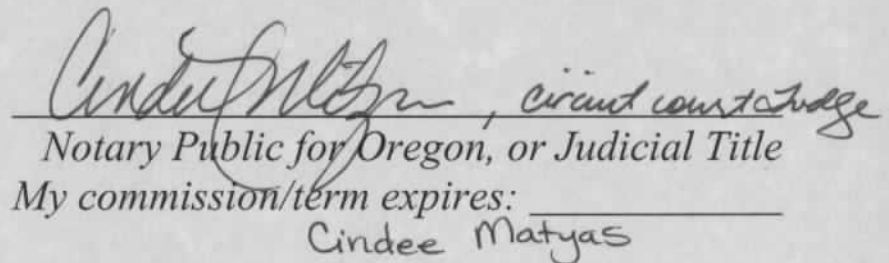 Cindee Matyas, circuit court Judge
Notary Public for Oregon, or Judicial Title
My commission/term expires: 
Cindee Matyas